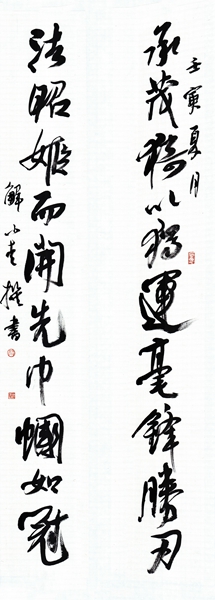 壬寅夏月
承茂漪以獨運毫鋒勝刃
法昭姬而開先巾幗如冠
解小青撰書